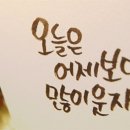 오늘은
어제보다
많이웃자